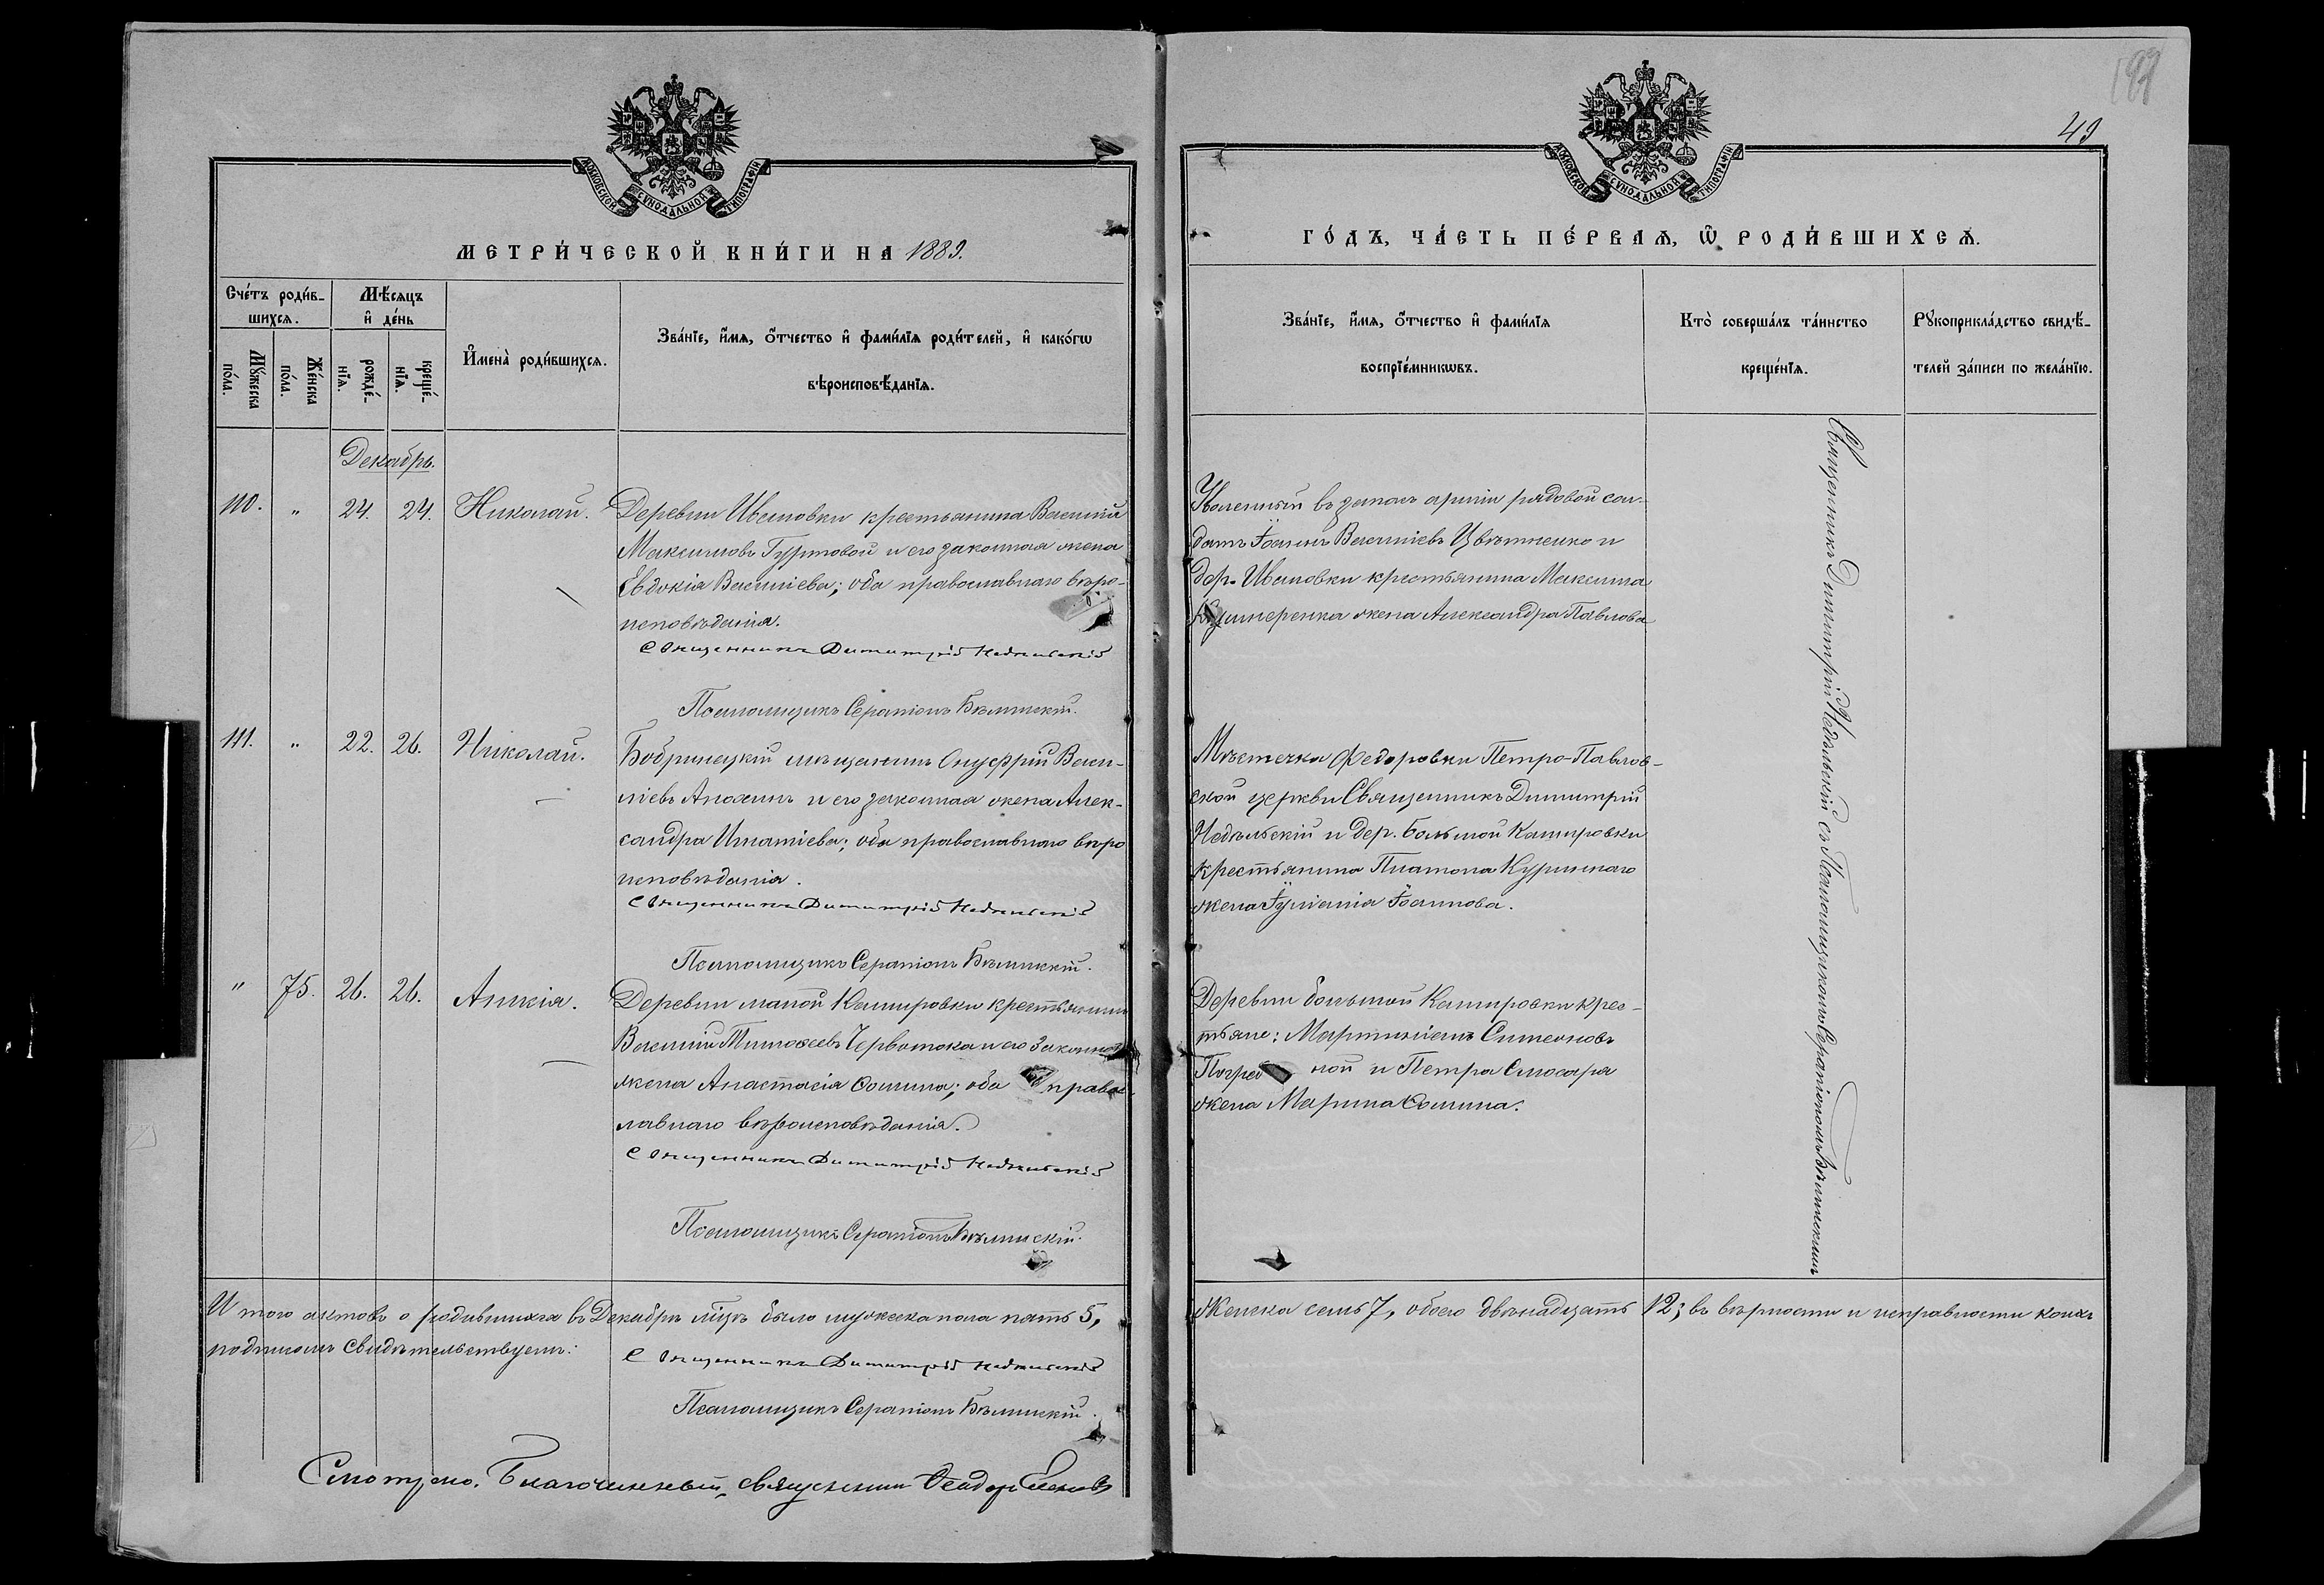 197
49
МОСКОВСКОЙ СѴНОДАЛЬНОЙ ТИПОГРАФІИ
МЕТРИ́ЧЕСКОЙ КНИ́ГИ НА 1889.
Сче́тъ роди́в-
шихсѧ.
Мѣ́сѧцъ
и҆ де́нь
Мꙋ́жеска
по́ла.
Же́нска
по́ла.
рожде́-
нїѧ.
креще́-
нїѧ.
И҆мена̀ роди́вшихсѧ.
Зва́нїе, и҆́мѧ, ѻ҆́тчество и҆ фами́лїѧ роди́телей, и҆ како́гѡ
вѣроисповѣ́данїѧ.
Декабрь.
110. " 24. 24. Николай.
Деревни Ивановки крестьянина Василій
Максимовъ Гуртовой и его законная жена
Евдокія Василіева; оба православнаго вѣро-
исповѣданія.
Священникъ Димитрій Недѣльскій
Псаломщикъ Серапіонъ Бѣлинскій.
111. " 22. 26. Николай.
Бобринецкій мѣщанинъ Онуфрій Васи-
ліевъ Анохинъ и его законная жена Алек-
сандра Игнатіева; оба православнаго вѣро
исповѣданія.
Священникъ Димитрій Недѣльскій
Псаломщикъ Серапіонъ Бѣлинскій.
" 75. 26. 26. Анисія.
Деревни малой Кашировки крестьянинъ
Василій Тимоѳеевъ Червотока и его законная
жена Анастасія Ѳомина; оба правос-
лавнаго вѣроисповѣданія.
Священникъ Димитрій Недѣльскій
Псаломщикъ Серапіонъ Бѣлинскій.
И того актовъ о родившихся въ Декабрѣ мцѣ было мужеска пола пять 5,
подписомъ свидѣтельствуемъ:
Священникъ Димитрій Недѣльскій
Псаломщикъ Серапіонъ Бѣлинскій.
Смотрено. Благочинный, священникъ Ѳеодоръ
МОСКОВСКОЙ СѴНОДАЛЬНОЙ ТИПОГРАФІИ
ГО́ДЪ, ЧА́СТЬ ПЕ́РВАѦ, Ѡ҆ РОДИ́ВШИХСѦ.
Зва́нїе, и҆́мѧ, ѻ҆́тчество и҆ фами́лїѧ
воспрїе́мникѡвъ.
Кто̀ соверша́лъ та́инство
креще́нїѧ.
Рꙋкоприкла́дство свидѣ́-
телей за́писи по жела́нїю.
Уволенный въ запасъ арміи рядовой сол-
датъ Іоаннъ Василіевъ Цвѣтненко и
дер. Ивановки крестьянина Максима
жена Александра Павлова
Мѣстечка Федоровки Петро-Павлов-
ской церкви Священникъ Димитрій
Недѣльскій и дер. Большой Кашировки
крестьянина Платона Куринного
жена Іуліанія Іоаннова.
Деревни большой Кашировки крес-
тьяне: Мартиніанъ Симеоновъ
Погреб ной и Петра Слюсаря
жена Марина Ѳомина.
Священникъ Димитрій Недѣльскій съ Псаломщикомъ Серапіономъ Бѣлинскимъ
Женска семь 7, обоего двѣнадцать 12; въ вѣрности и исправности коихъ